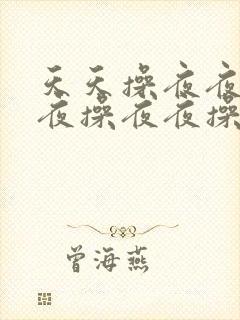 天天操夜夜
夜操夜夜操
曾海燕